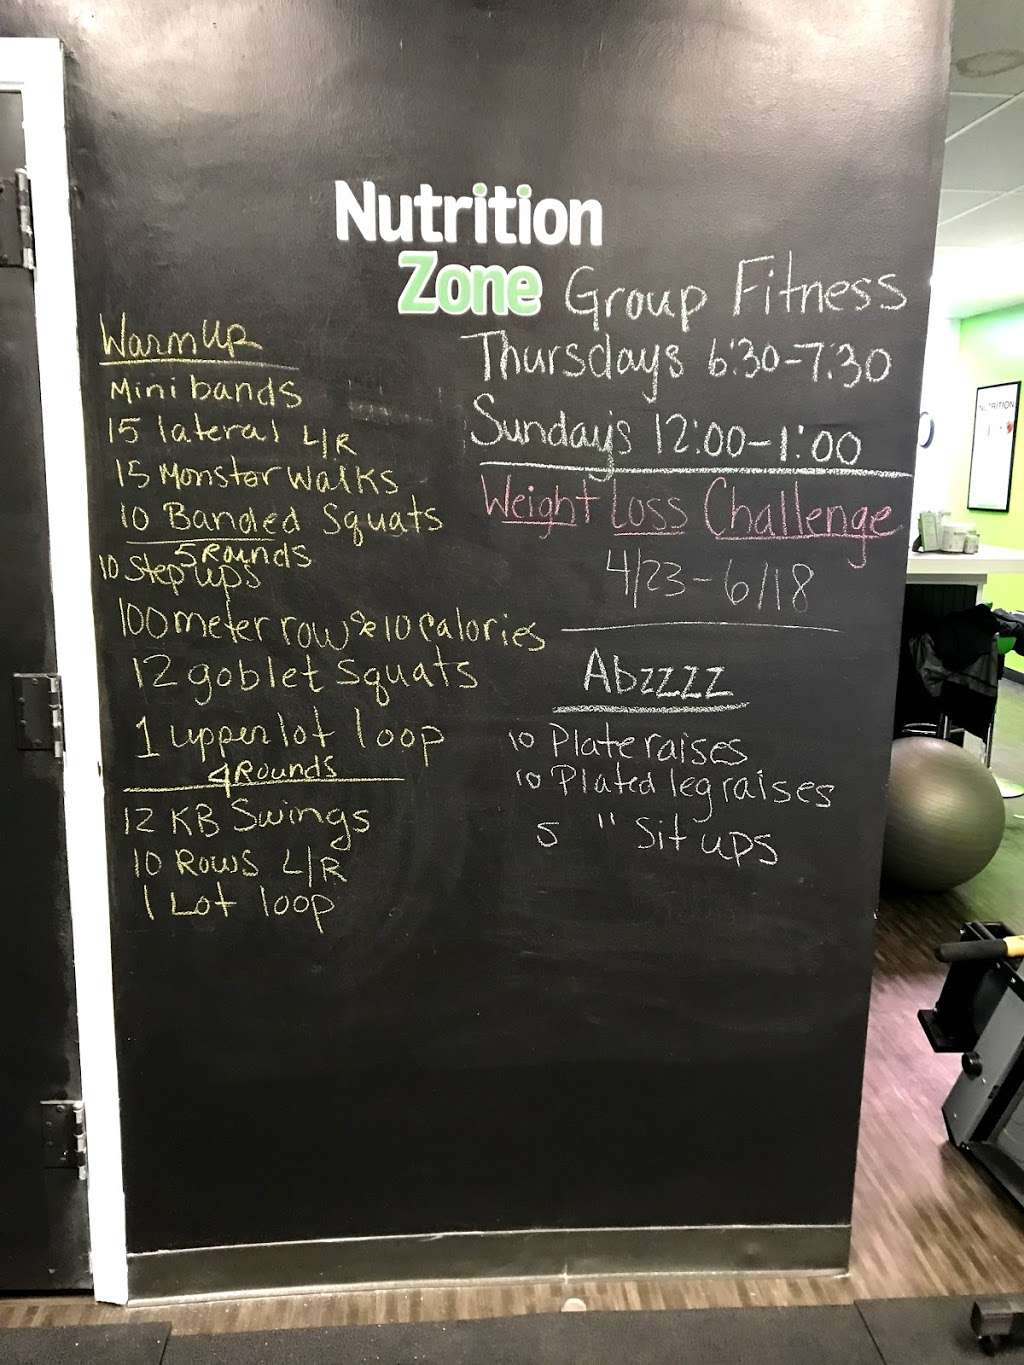 Nutrition
Zone
Group Fitness
Thursdays 6:30-7:30
Sundays 12:00-1:00
Weight Loss Challenge
4/23-6/18
Abzzzz
10 Plate raises
10 Plated leg raises
5 " Sit ups
Warm Up
Mini bands
15 lateral L/R
15 Monster Walks
10 Banded Squats
5 Rounds
10 Step ups
100 meter row & 10 calories
12 goblet squats
1 upper lot loop
4 Rounds
12 KB Swings
10 Rows L/R
1 Lot loop
NUTRITION